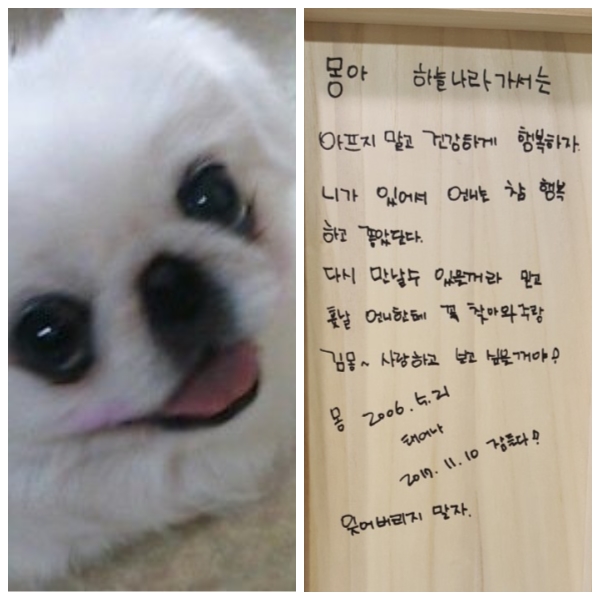 몽아 하늘나라 가서는
아프지 말고 건강하게 행복하자.
니가 있어서 언니는 참 행복
하고 좋았단다.
다시 만날수 있을꺼라 믿고
훗날 언니한테 꼭 찾아와주랑
김몽~ 사랑하고 보고 싶을거야?
몽 2006.4.21
태어나
2017.11.10 잠들다?
잊어버리지 말자.